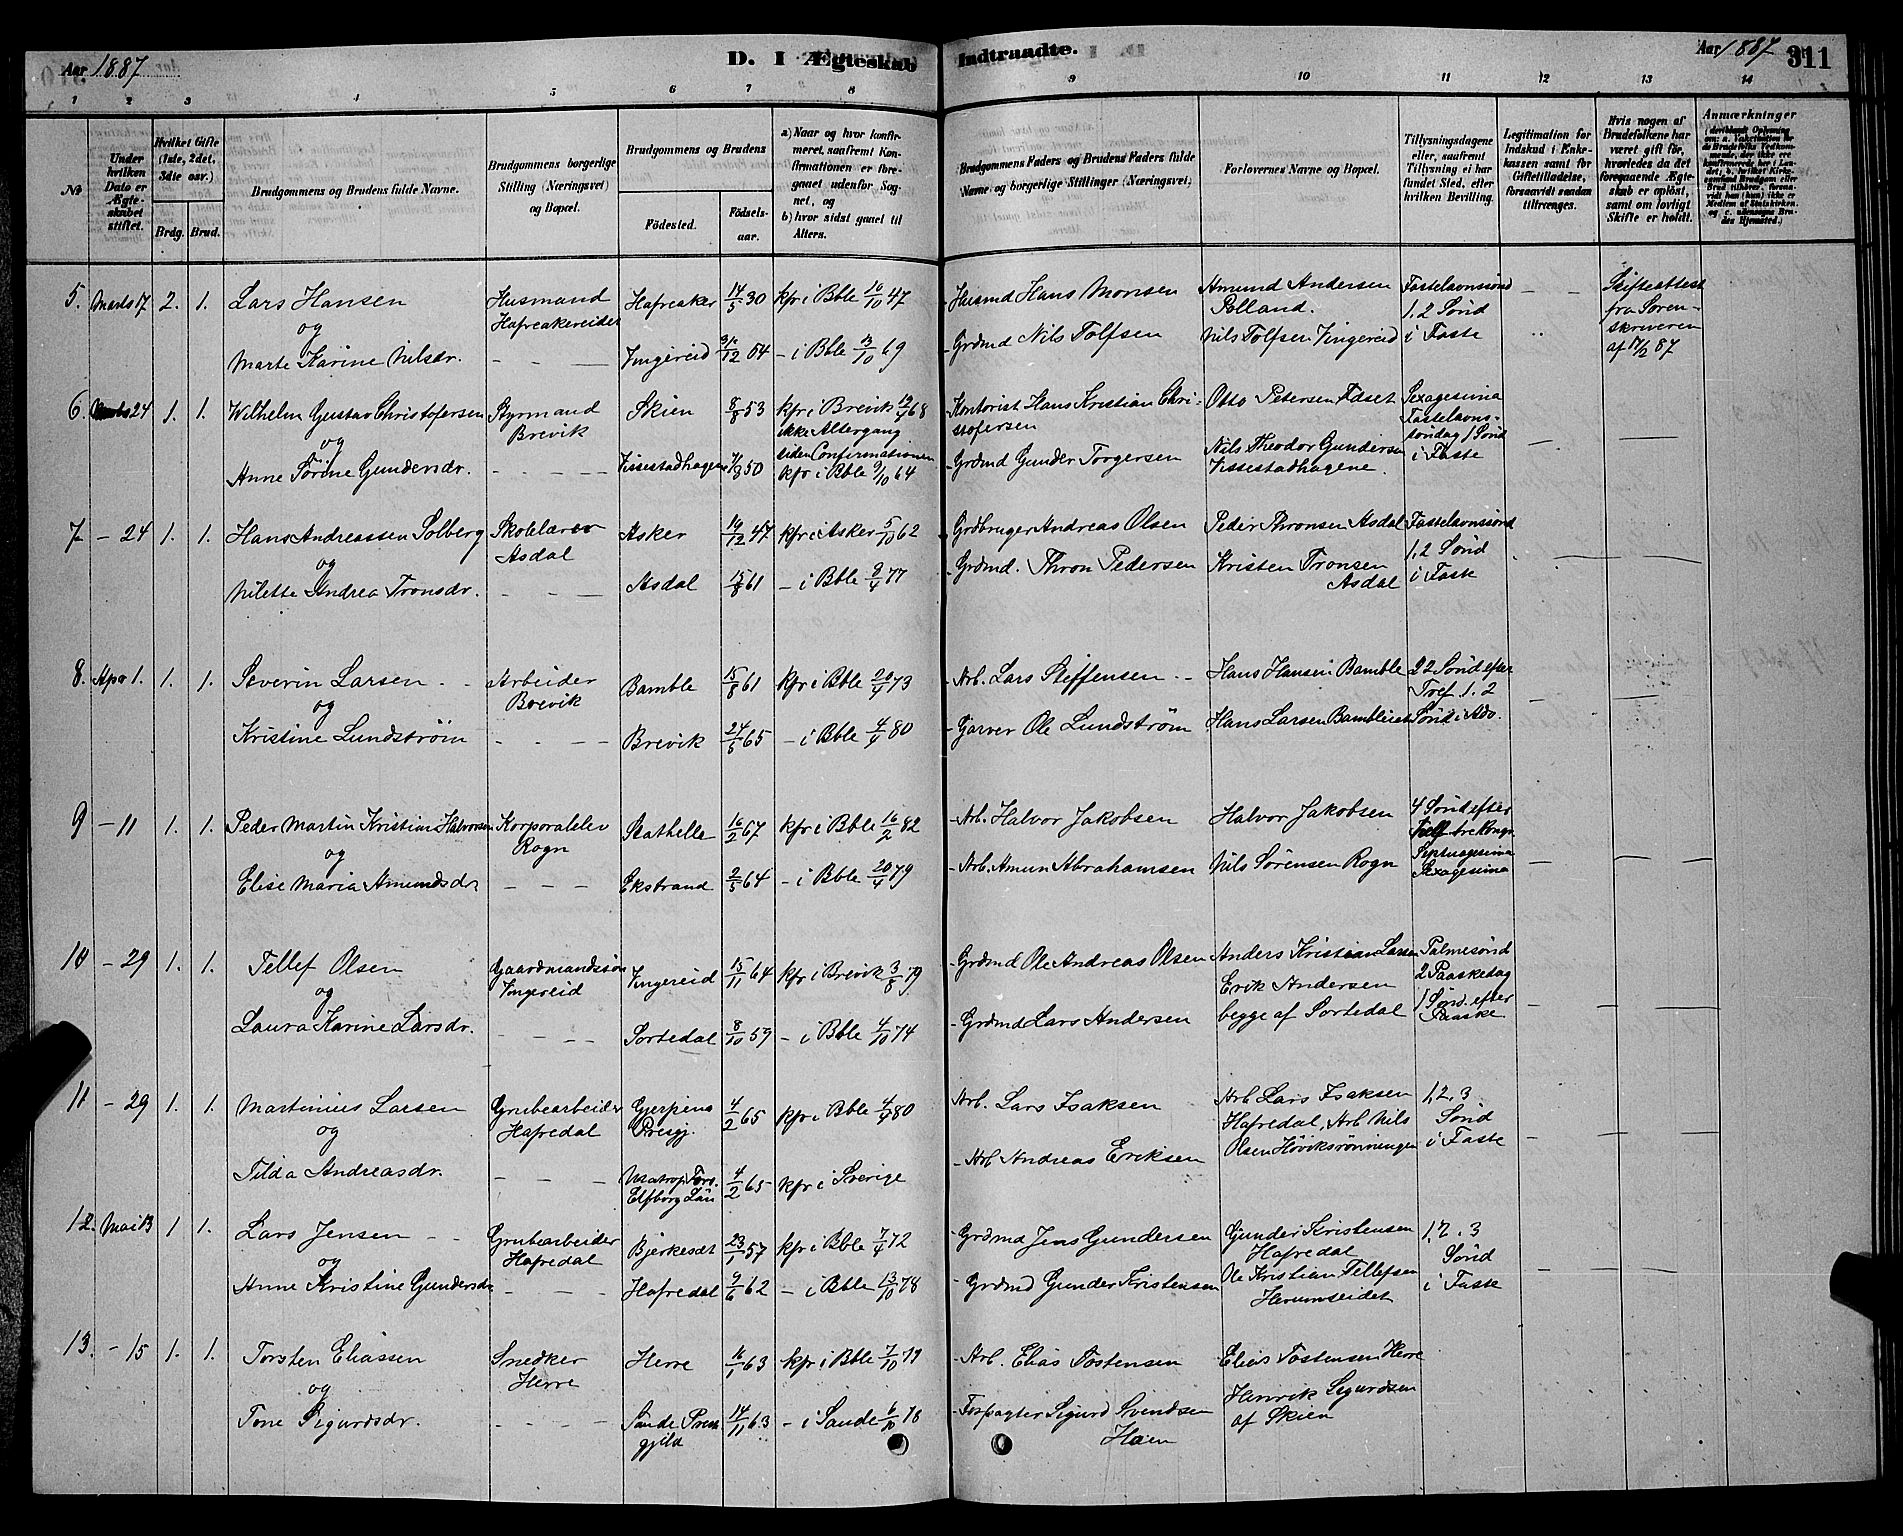 Aar 1887
D. I Ægteskab Indtraadte.
Aar 1887 311
1 2 3 4 5 6 7 8 9 10 11 12 13 14
No
Under hvilken Dato er Ægteskabet stiftet.
Hvilket Gifte (1ste, 2det, 3die osv.)
Brdg. Brud.
Brudgommens og Brudens fulde Navne.
Brudgommens borgerlige Stilling (Næringsvei) og Bopæl.
Brudgommens og Brudens
Födested. Födselsaar.
a) Naar og hvor konfirmeret, saafremt Konfirmationen er foregaaet udenfor Sognet, og
b) hvor sidst gaaet til Alters.
Brudgommens Faders og Brudens Faders fulde Navne og borgerlige Stillinger (Næringsvei)
Forlovernes Navne og Bopæl.
Tillysningsdagene eller, saafremt Tillysning ei har fundet Sted, efter hvilken Bevilling.
Legitimation for Indskud i Enkekassen samt for Giftetilladelse, forsaavidt saadan tiltrænges.
Hvis nogen af Brudefolkene har været gift før, hvorledes da det foregaaende Ægteskab er opløst, samt om lovligt Skifte er holdt.
Anmærkninger
5. Marts 17 2. 1. Lars Hansen Husmand Hafreaker 14/5 30 kfr i Bble 16/10 47 Husmd Hans Monsen Amund Andersen Fastelavnssønd Skifteattest
og Hafreakereidet Polland. 1, 2 Sønd fra Soren-
Marte Karine Nilsdr. Vingereid 31/12 64 - i Bble 13/10 69 Grdmd Nils Tolfsen Nils Tolfsen Vingereid i Faste skriveren
af 17/2 87
6. 24 1. 1. Wilhelm Gustav Christofersen Styrmand Skien 8/8 53 kfr i Brevik 19/4 68 Kontorist Hans Kristian Chri- Otto Petersen Sexagesima
Brevik ikke Altergang stofersen Fastelavns-
og siden Confirmationen Nils Theodor Gundersen søndag 1 Sønd
Anne Sørine Gundersdr. Vissestadhagene 7/3 50 kfr i Bble 9/10 64 Grdmd Gunder Torgersen Vissestadhagene. i Faste
7 - 24 1. 1. Hans Andreassen Solberg Skolelærer Asker 19/12 47 kfr i Asker 5/10 62 Grdbruger Andreas Olsen Peder Thronsen Asdal Fastelavnssønd
og Asdal 1, 2 Sønd
Nilette Andrea Tronsdr. Asdal 15/8 61 - i Bble 8/4 77 Grdmd. Thron Pedersen Kristen Tronsen i Faste
Asdal
8. Apr 1. 1. 1. Severin Larsen Arbeider Bamble 15/8 61 kfr i Bble 20/4 73 Arb. Lars Steffensen Hans Hansen Bamble 22 Sønd efter
og Brevik Tref. 1. 2
Kristine Lundstrøm Brevik 24/5 65 - i Bble 4/4 80 Garver Ole Lundstrøm Hans Larsen Sønd i Adv.
9 - 11 1. 1. Peder Martin Kristian Halvorsen Korporalelev Stathelle 16/2 67 kfr i Bble 16/2 82 Arb. Halvor Jakobsen Halvor Jakobsen 4 Sønd efter
og Rogn Septuagesima
Elise Maria Amundsdr Ekstrand 2/5 64 - i Bble 20/4 79 Arb. Amun Abrahamsen Nils Sørensen Rogn Sexagesima
10 - 29 1. 1. Tellef Olsen Gaardmandssøn Vingereid 15/11 64 kfr i Brevik 3/8 79 Grdmd Ole Andreas Olsen Anders Kristian Larsen Palmesønd
og Vingereid Erik Andersen 2 Paaskedag
Laura Karine Larsdr. Sortedal 8/10 59 - i Bble 4/10 74 Grdmd Lars Andersen begge af Sortedal 1 Sønd. efter
Paaske.
11 - 29 1. 1. Martinius Larsen Grubearbeider Gjerpens 4/2 65 kfr i Bble 4/4 80 Arb. Lars Isaksen Arb Lars Isaksen 1, 2, 3
og Hafredal Presgj. Hafredal, Arb Nils Sønd
Olsen Høviksrønningen i Faste
Tilda Andreasdr. Elfborg Län 4/2 65 kfr i Sverige Arb Andreas Eriksen
12. Mai 13 1 1. Lars Jensen Grubearbeider Bjerkesæt 23/1 57 kfr i Bble 7/4 72 Grdmd Jens Gundersen Gunder Kristensen 1, 2. 3
og Hafredal Hafredal Sønd
Anne Kristine Gundersdr Hafredal 9/6 62 - i Bble 13/10 78 Grdmd Gunder Kristensen Ole Kristian Tellefsen i Faste
Herumseidet
13. - 15 1. 1. Torsten Eliassen Snedker Herre 16/1 63 kfr i Bble 7/10 79 Arb. Elias Tostensen Elias Tostensen Herre
og Herre Henrik Sigurdsen
Tone Sigurdsdr. Sande Præs 14/11 63 - i Sande 6/10 78 Forpagter Sigurd Svendsen af Skien
gjeld Haen